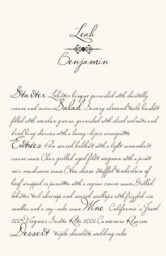 Leah
Benjamin
Starter Lobster bisque garnished with chantilly
cream and caviar Salad Savory almond tuile basket
filled with mesclun greens, garnished with dried walnuts and
dried berries with a honey-dijon vinaigrette
Entrées Pan seared halibut with a light
cream sauce Char grilled aged filet mignon with a
mushroom sauce Bleu cheese stuffed tenderloin of
beef wrapped in pancetta with a cognac cream sauce Grilled
lobster tail, shrimp and seared scallops with fried
noodles and a soy-sake sauce Wine California's Jewel
2005 Wagner Santa Rita 2006 Carneros Reserve
Dessert triple chocolate wedding cake